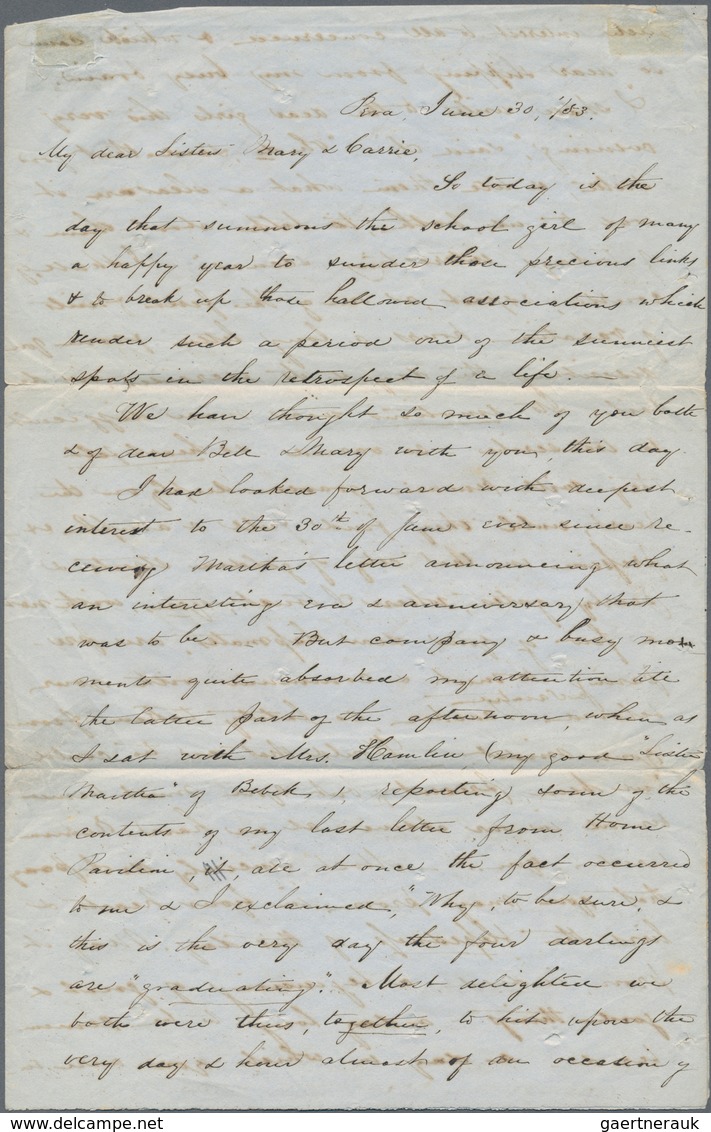 Pera, June 30, /53.
My dear Sisters Mary & Carrie,
So today is the
day that summons the school girl of many
a happy year to sunder those precious links
& to break up those hallowed associations which
render such a period one of the sunniest
spots in the retrospect of a life. —
We have thought so much of you both
& of dear Bell & Mary with you, this day.
I had looked forward with deepest
interest to the 30th of June ever since re-
ceiving Martha's letter announcing what
an interesting era & anniversary that
was to be. But company & busy mo-
ments quite absorbed my attention till
the latter part of the afternoon, when as
I sat with Mrs. Hamlin, (my good "Sister
Martha" of Bebek), reporting some of the
contents of my last letter from Home
Pavilion, all at once the fact occurred
to me & I exclaimed, "Why, to be sure, &
this is the very day the four darlings
are "graduating". Most delighted we
both were thus, together, to hit upon the
very day & hour almost of an occasion of
gaertnerauk